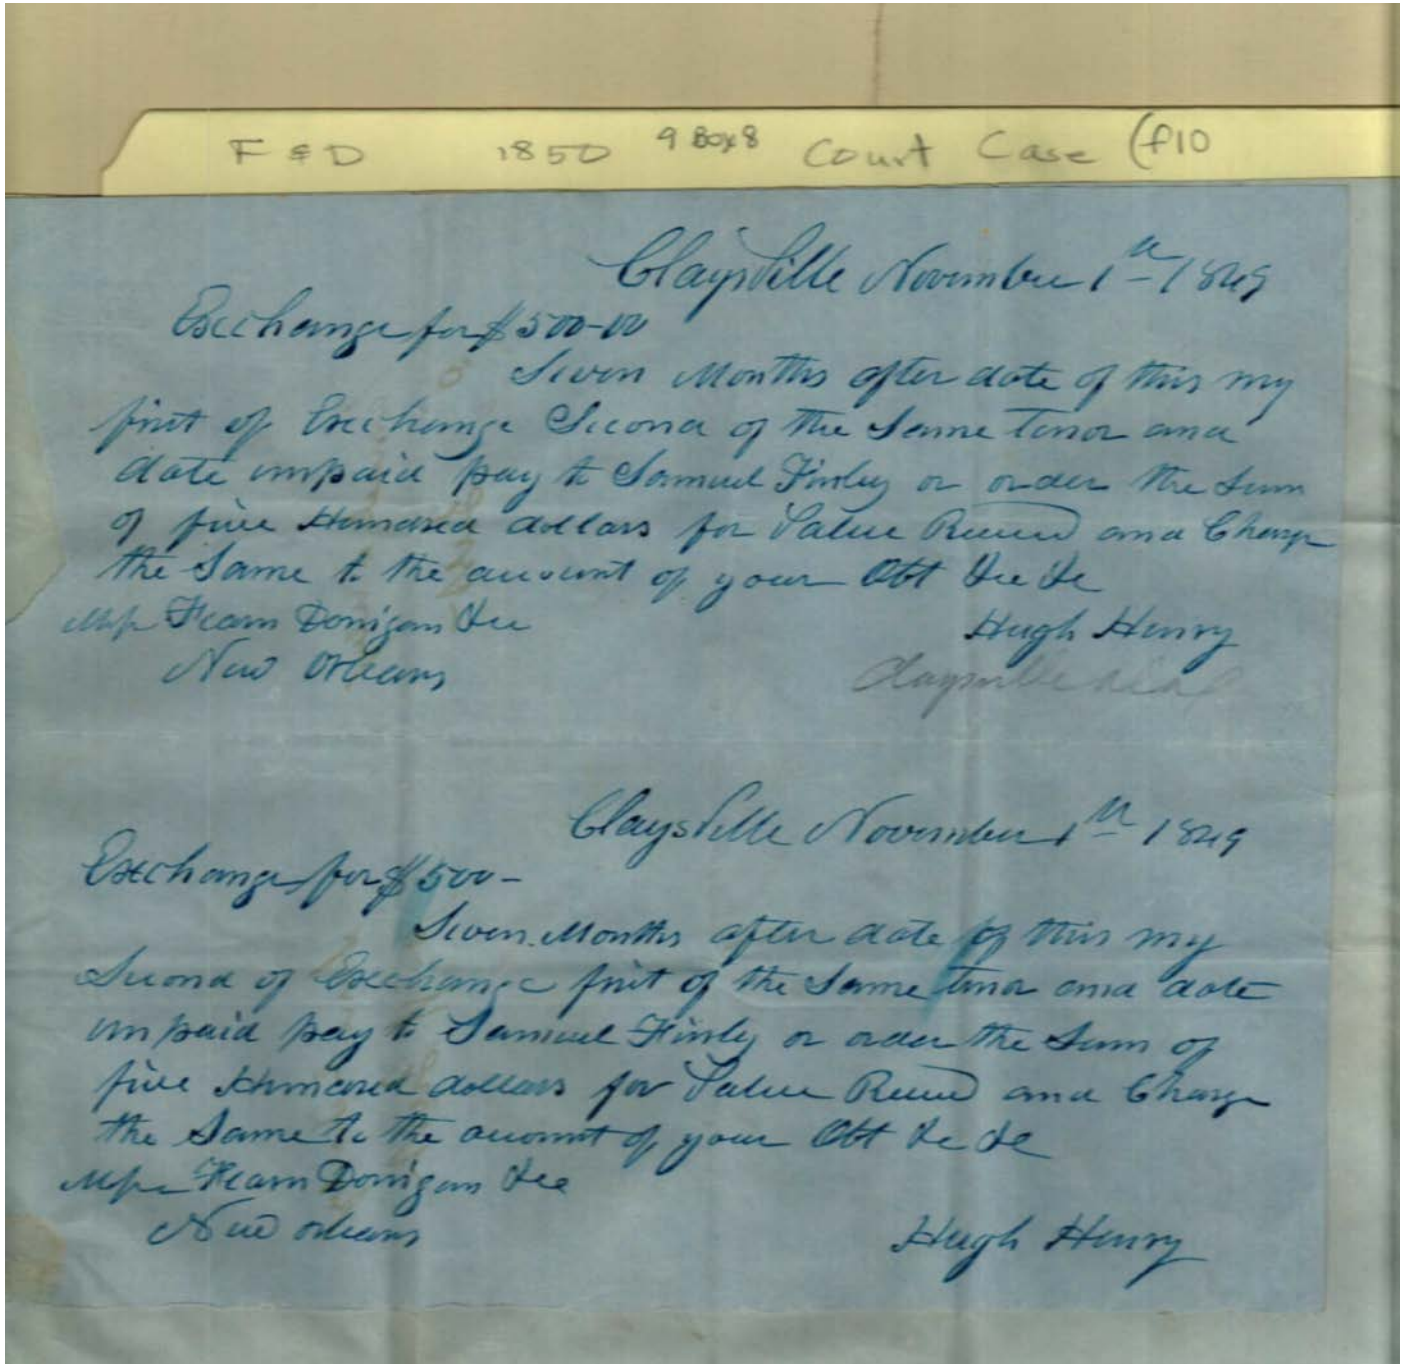 F & D 1850 9 Box 8 Court Case (f10
Claysville November 1st 1849
Exchange for $500-00
Seven Months after date of this my
first of Exchange Second of the Same Tenor and
date unpaid pay to Samuel Finley or order the Sum
of five Hundred dollars for Value Received and Charge
the Same to the account of your Obt
Fearn Donigan &co
Hugh Henry
New Orleans
Claysville
Claysville November 1st 1849
Exchange for $500-
Seven Months after date of this my
Second of Exchange first of the Same tenor and date
unpaid pay to Samuel Finley or order the Sum of
five Hundred dollars for Value Received and Charge
the Same to the account of your Obt
Fearn Donigan &co
New orleans
Hugh Henry